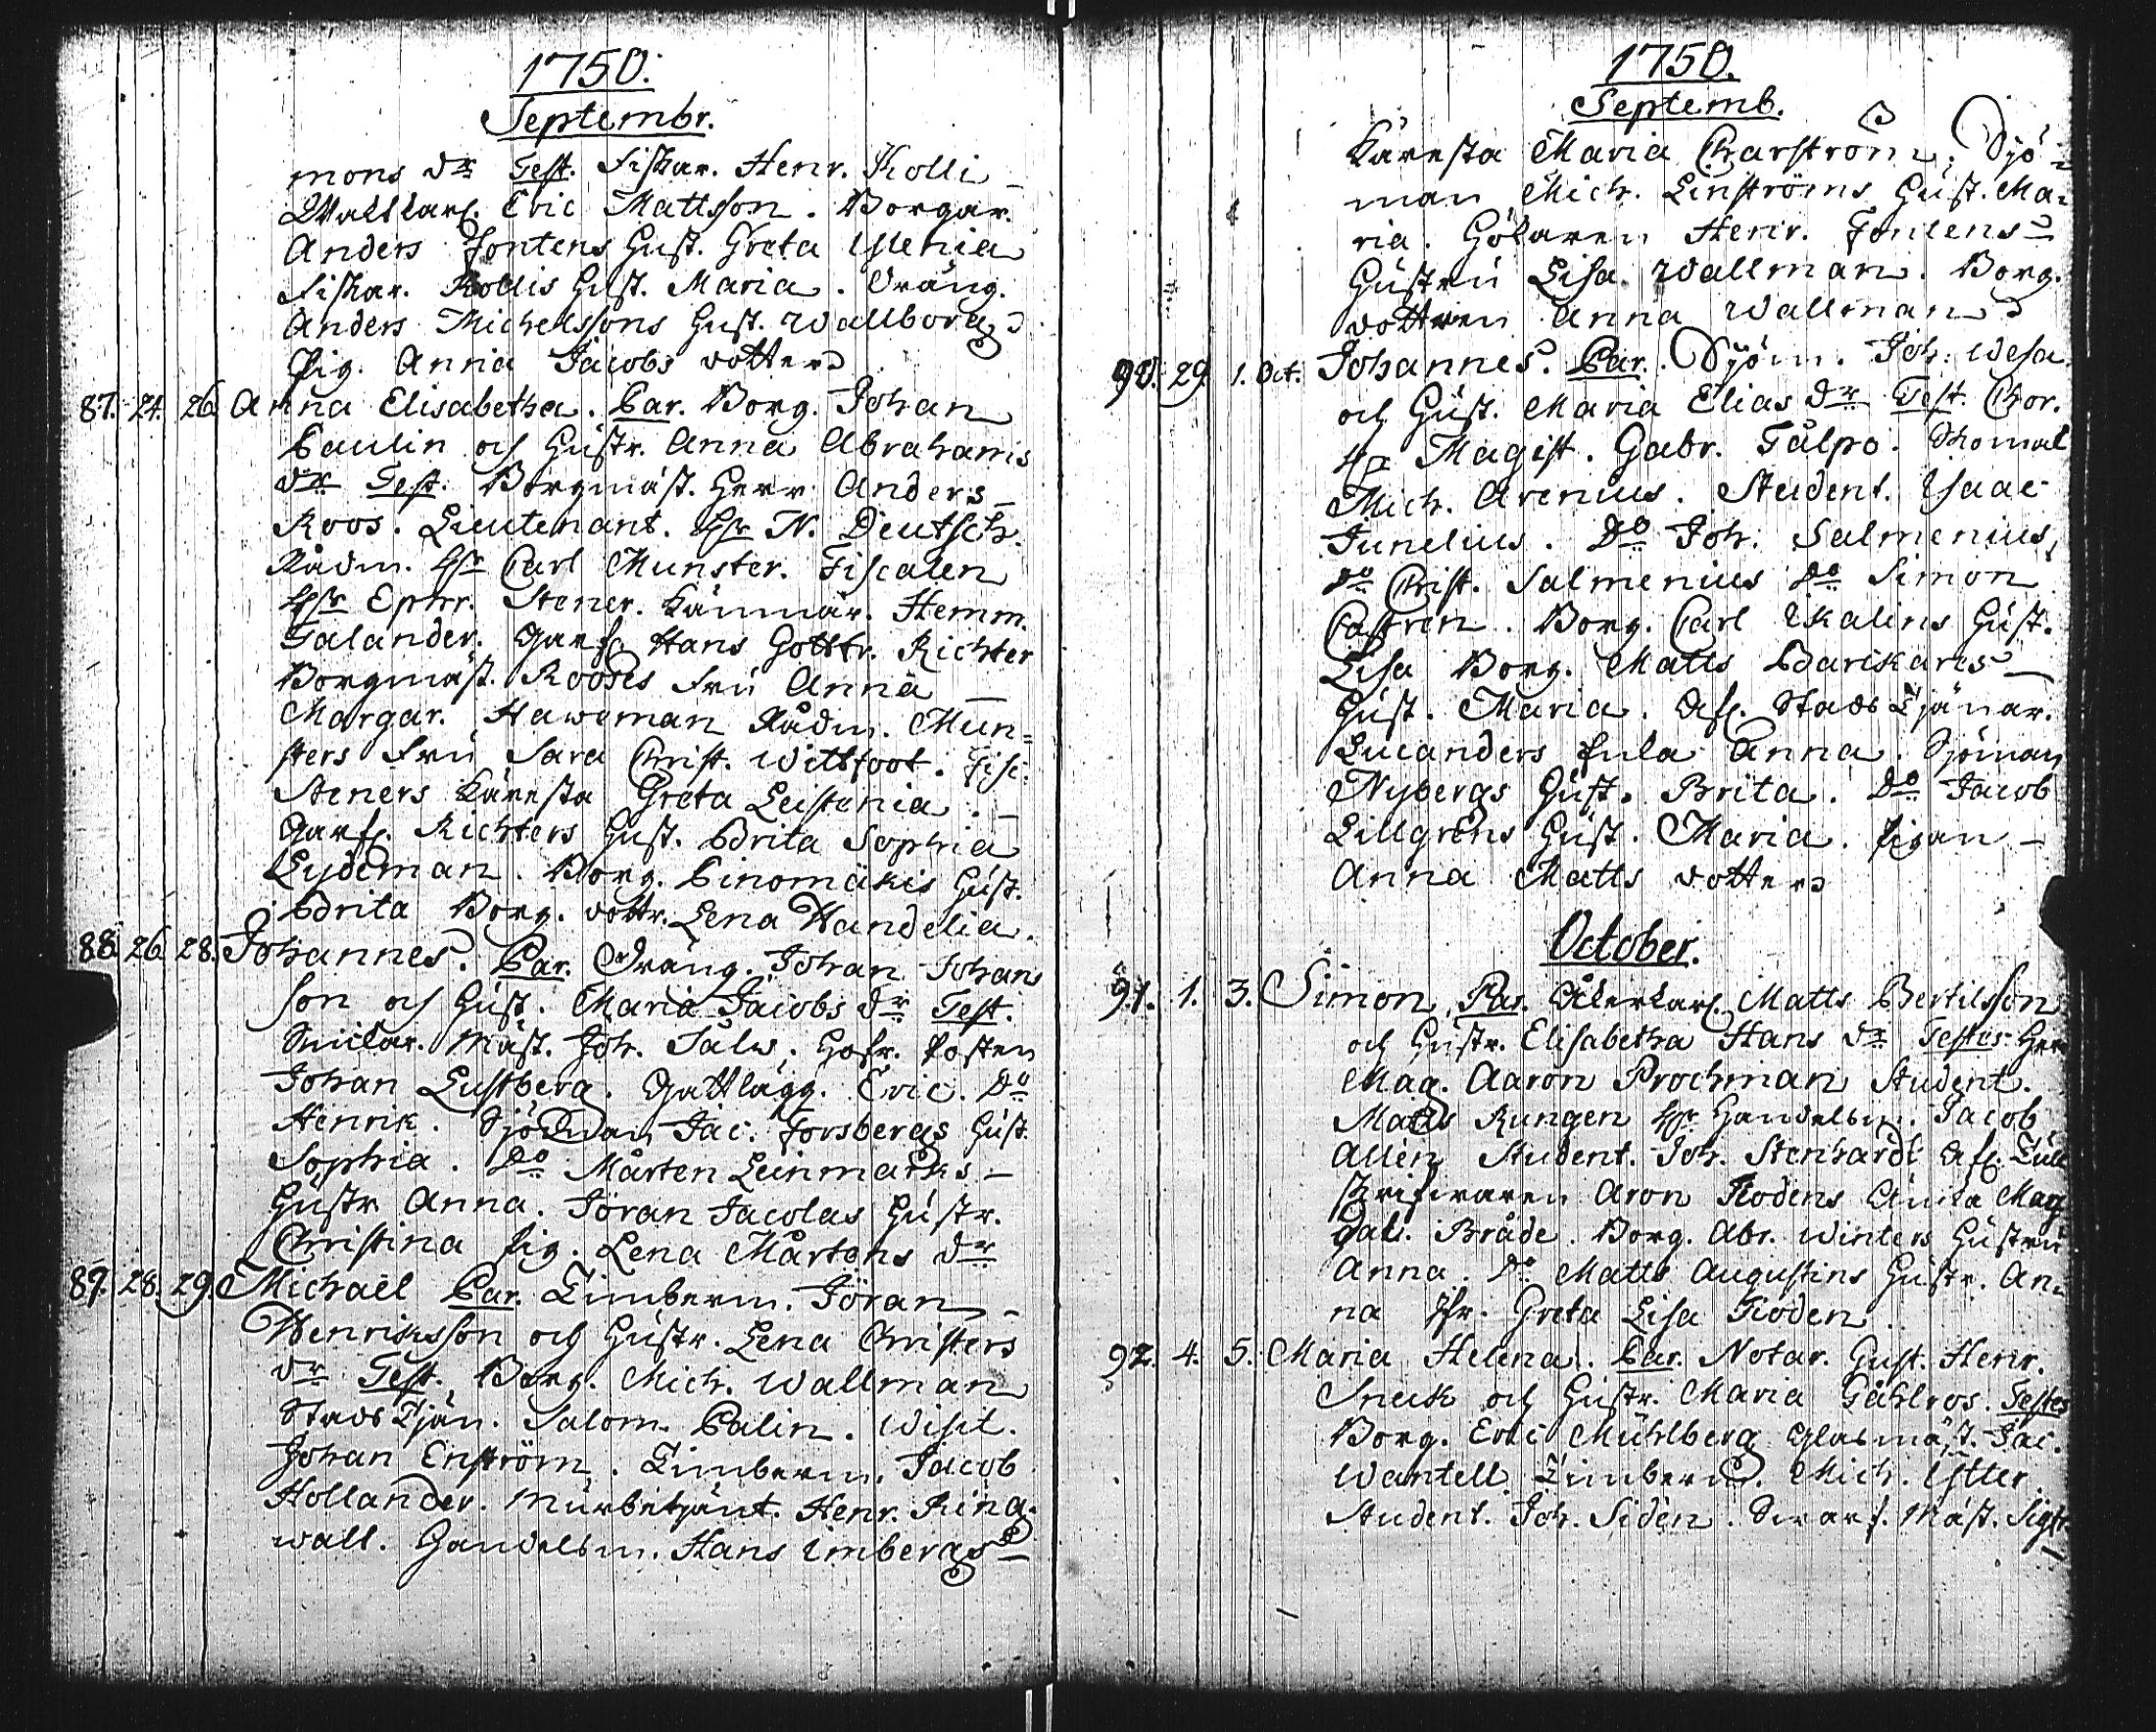 1750.
Septembr.
mons dr Test. Fiskar. Henr. Kolli
Wallkarl. Eric Mattsson. Borgar.
Anders Fontens Hust. Greta Ulenia
Fiskar. Kollis Hust. Maria. Dräng.
Anders Michelssons Hust. Wallborg
Pig. Anna Jacobs dotter
87. 24. 26. Anna Elisabetha. Par. Borg. Johan
Paulin och Hustr. Anna Abrahams
dr Test. Borgmäst. Herr Anders
Roos. Lieutenant. Hr N. Deutsch.
Rådm. Hr Carl Munster. Fiscalen
Hr Ephr. Stener. Kämnär. Hemm.
Salander. Garf. Hans Gottfr. Richter
Borgmäst. Rooses Fru Anna
Margar. Haweman Rådm. Mun=
sters Fru Sara Christ. Wittfoot. Fisc.
Steners Käresta Greta Leistenia.
Garf. Richters Hust. Brita Sophia
Eydeman. Borg. Pinomäkis Hust.
Brita Borg. dottr. Lena Wandelia.
88. 26. 28. Johannes. Par. Dräng. Johan Johans
son och Hust. Maria Jacobs dr Test.
Snickar. Mäst. Joh. Salw. Hofr.
Johan Lustberg. Gattlägg. Eric. Do
Henrik. Sjöman Jac. Forsbergs Hust.
Sophia. Do Mårten Leinmarks
Hustr Anna. Jöran Jacolas Hustr.
Christina Pig. Lena Mårtens dr
89. 28. 29. Michaël Par. Timberm. Jöran
Henriksson och Hustr. Lena Christers
dr Test. Borg. Mich. Wallman
Stads Tjän. Salom. Palin. Visit.
Johan Enström. Timberm. Jacob
Hollander. Murbetjänt. Henr. Ring=
wall. Handelsm. Hans Imbergs
1750.
Septemb.
Käresta Maria Charström. Sjö=
man Mich. Linströms Hust. Ma=
ria. Hökaren Henr. Fontens
Hustru Lisa Wallman. Borg.
dottren Anna Wallman
90. 29. 1. Oct. Johannes. Par. Sjöm. Joh. Wesa
och Hust. Maria Elias dr Test. Chor.
Hr Magist. Gabr. Talpo.
Mich. Arenius. Student. Isaac
Junelius. Do Joh. Salmenius,
Do Christ. Salmenius Do Simon
Castren. Borg. Carl Ekalins Hust.
Lisa Borg. Matts Barkares
Hust. Maria. Afl. Stads Tjänar.
Lucanders Enka Anna. Sjöman
Nybergs Hust. Brita. Do Jacob
Lillgrens Hust. Maria. Pigan
Anna Matts dotter
October.
91. 1. 3. Simon. Par. Åkerkarl. Matts Bertilsson
och Hustr. Elisabetha Hans dr Testes Herr
Mag. Aaron Prochman Student.
Matts Rungen Hr Handelsm. Jacob
Allén Student. Joh. Stenhardt Afl. Tull
skrifwaren Aron Flodens Änka Mag
dal. Bråde. Borg. Abr. Winters Hustru
Anna. Do Matts Augustins Hustr. An=
na Jfr. Greta Lisa Floden
92. 4. 5. Maria Helena. Par. Notar. Gust. Henr.
Sneck och Hustr. Maria Gahlros. Testes
Borg. Eric Mühlberg Glasmäst. Jac.
Wantell. Timberm. Mich. Ytter.
Student. Joh. Sidén. Swarf. Mäst. Sigfr